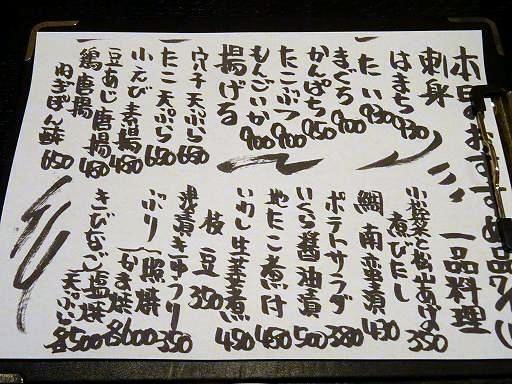 本日のおすすめ品
刺身
はまち 930
たい 930
まぐろ 900
かんぱち 950
たこぶつ 900
もんごいか 900
揚げる
穴子天ぷら 680
たこ天ぷら 650
小えび素揚 450
豆あじ唐揚 450
鶏唐揚
ねぎぽん酢 650
一品料理
小松菜と松山あげの
煮びたし 350
鯛南蛮漬 430
ポテトサラダ 380
いくら醤油漬 500
地たこ煮付 450
いわし生姜煮 450
枝豆 350
浅漬きゅうり 350
ぶり 照焼
かま焼 各600
きびなご 塩焼
天ぷら 各500